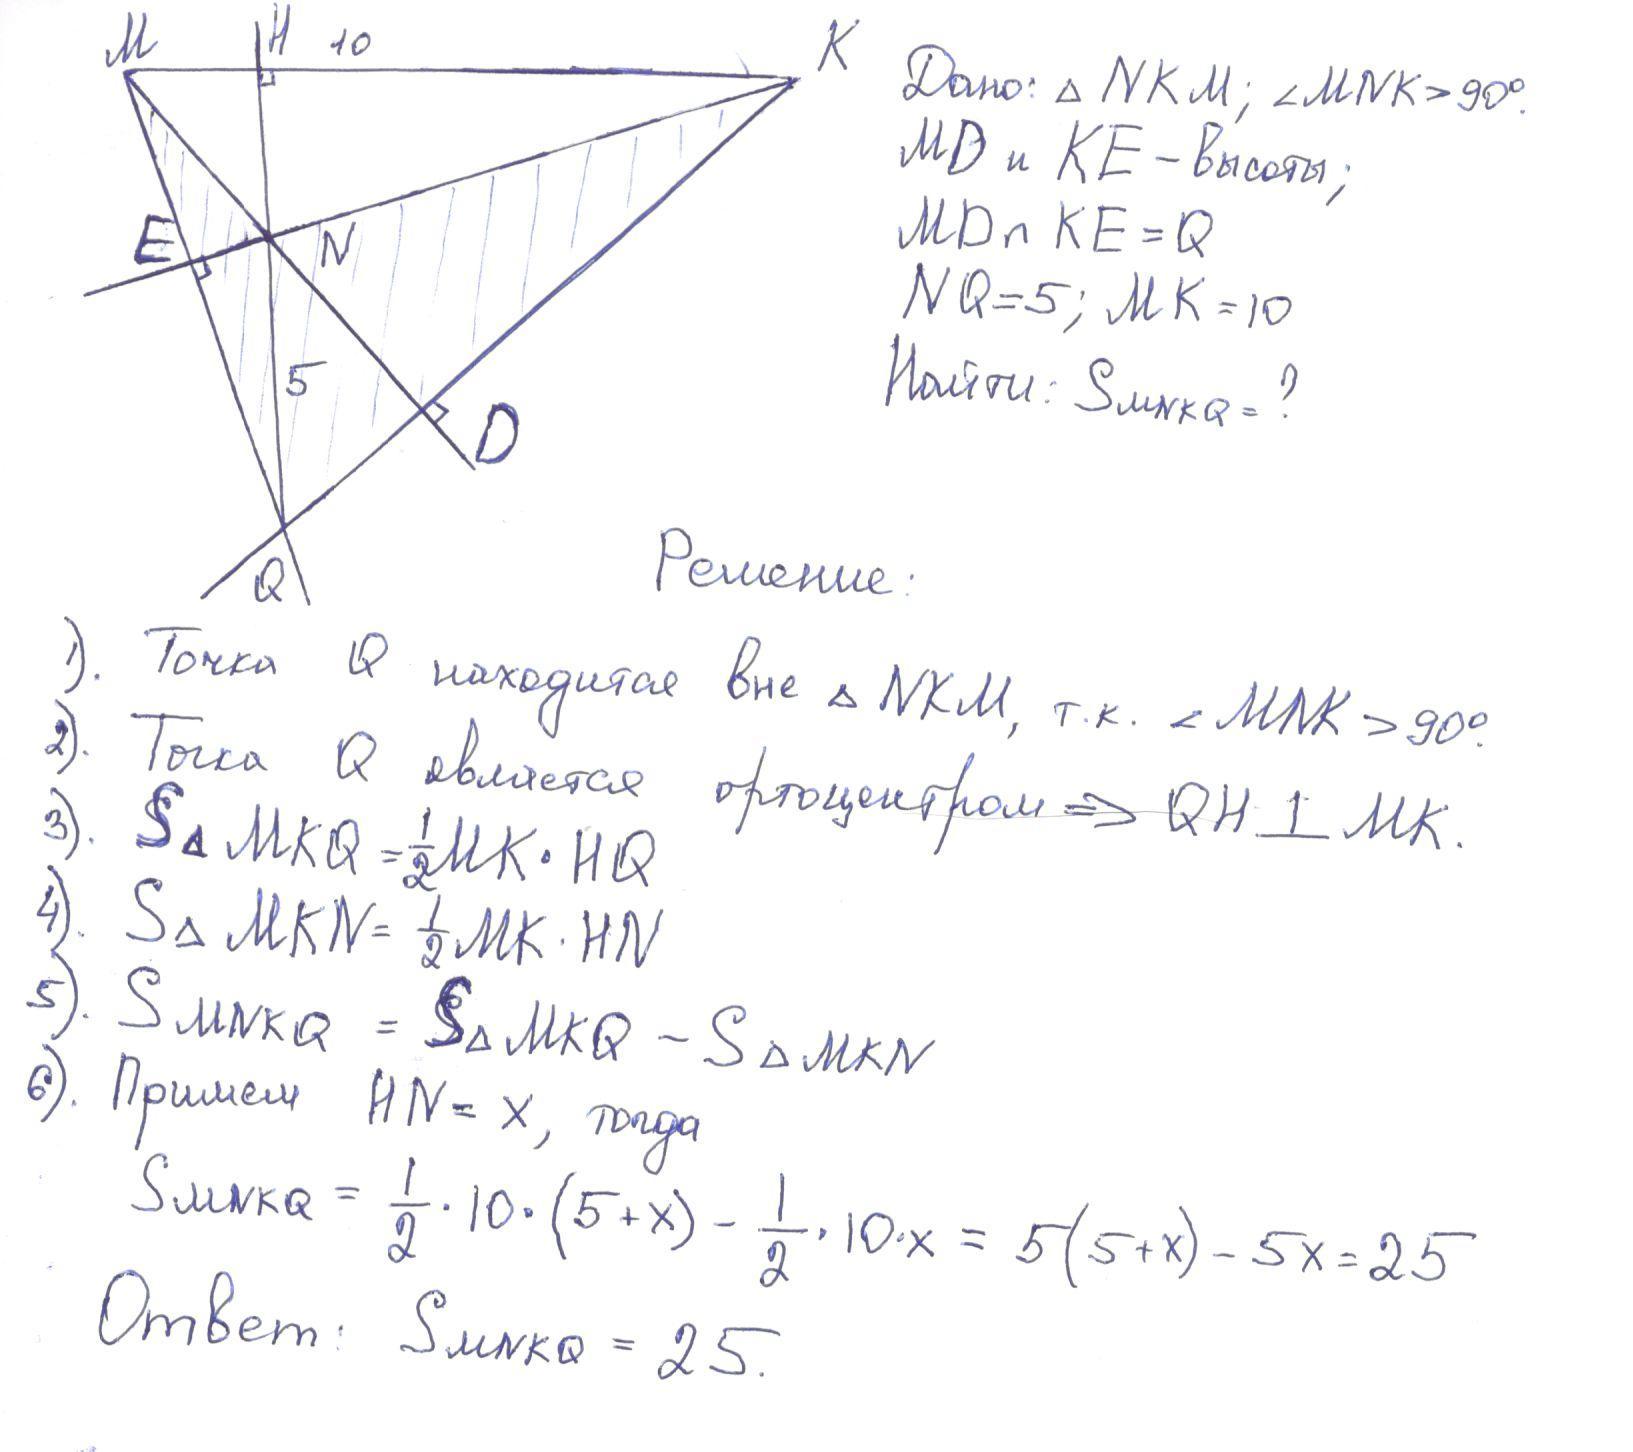 M H 10 K
E N
5
D
Q
Дано: △ NKM; ∠MNK > 90°.
MD и KE – высоты;
MD ∩ KE = Q
NQ = 5; MK = 10
Найти: S MNKQ = ?
Решение:
1). Точка Q находится вне △ NKM, т.к. ∠ MNK > 90°.
2). Точка Q является ортоцентром ⇒ QH ⊥ MK.
3). S△ MKQ = 1/2 MK · HQ
4). S△ MKN = 1/2 MK · HN
5). S MNKQ = S△ MKQ – S△ MKN
6). Примем HN = x, тогда
S MNKQ = 1/2 · 10 · (5+x) – 1/2 · 10 · x = 5(5+x) – 5x = 25
Ответ: S MNKQ = 25.